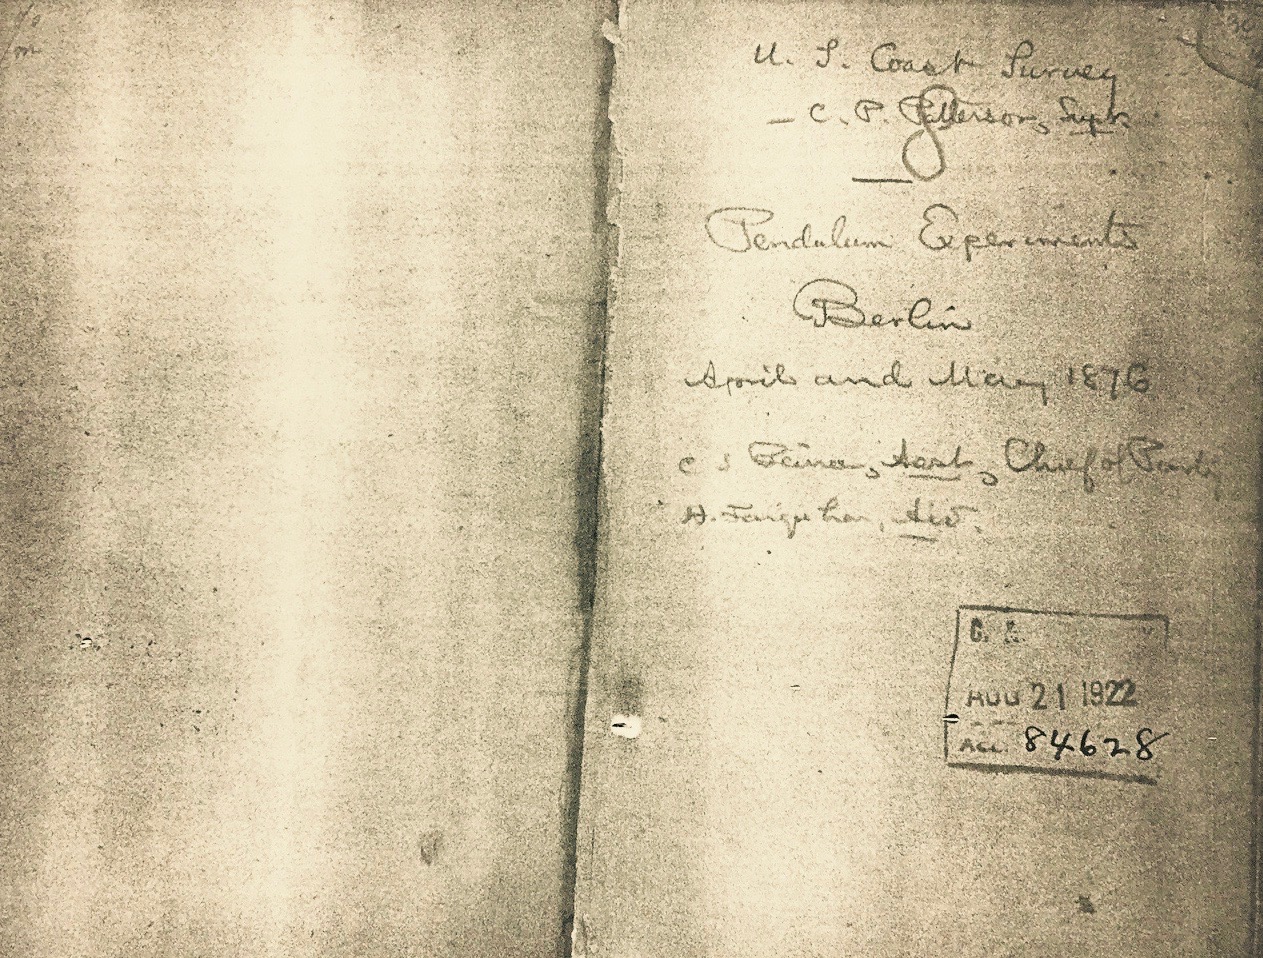 U. S. Coast Survey
C. P. Patterson, Supt.
Pendulum Experiments
Berlin
April and May 1876
C S Peirce, Asst, Chief of Party
H. Farquhar, Aid.
AUG 21 1922
Acc. 84628